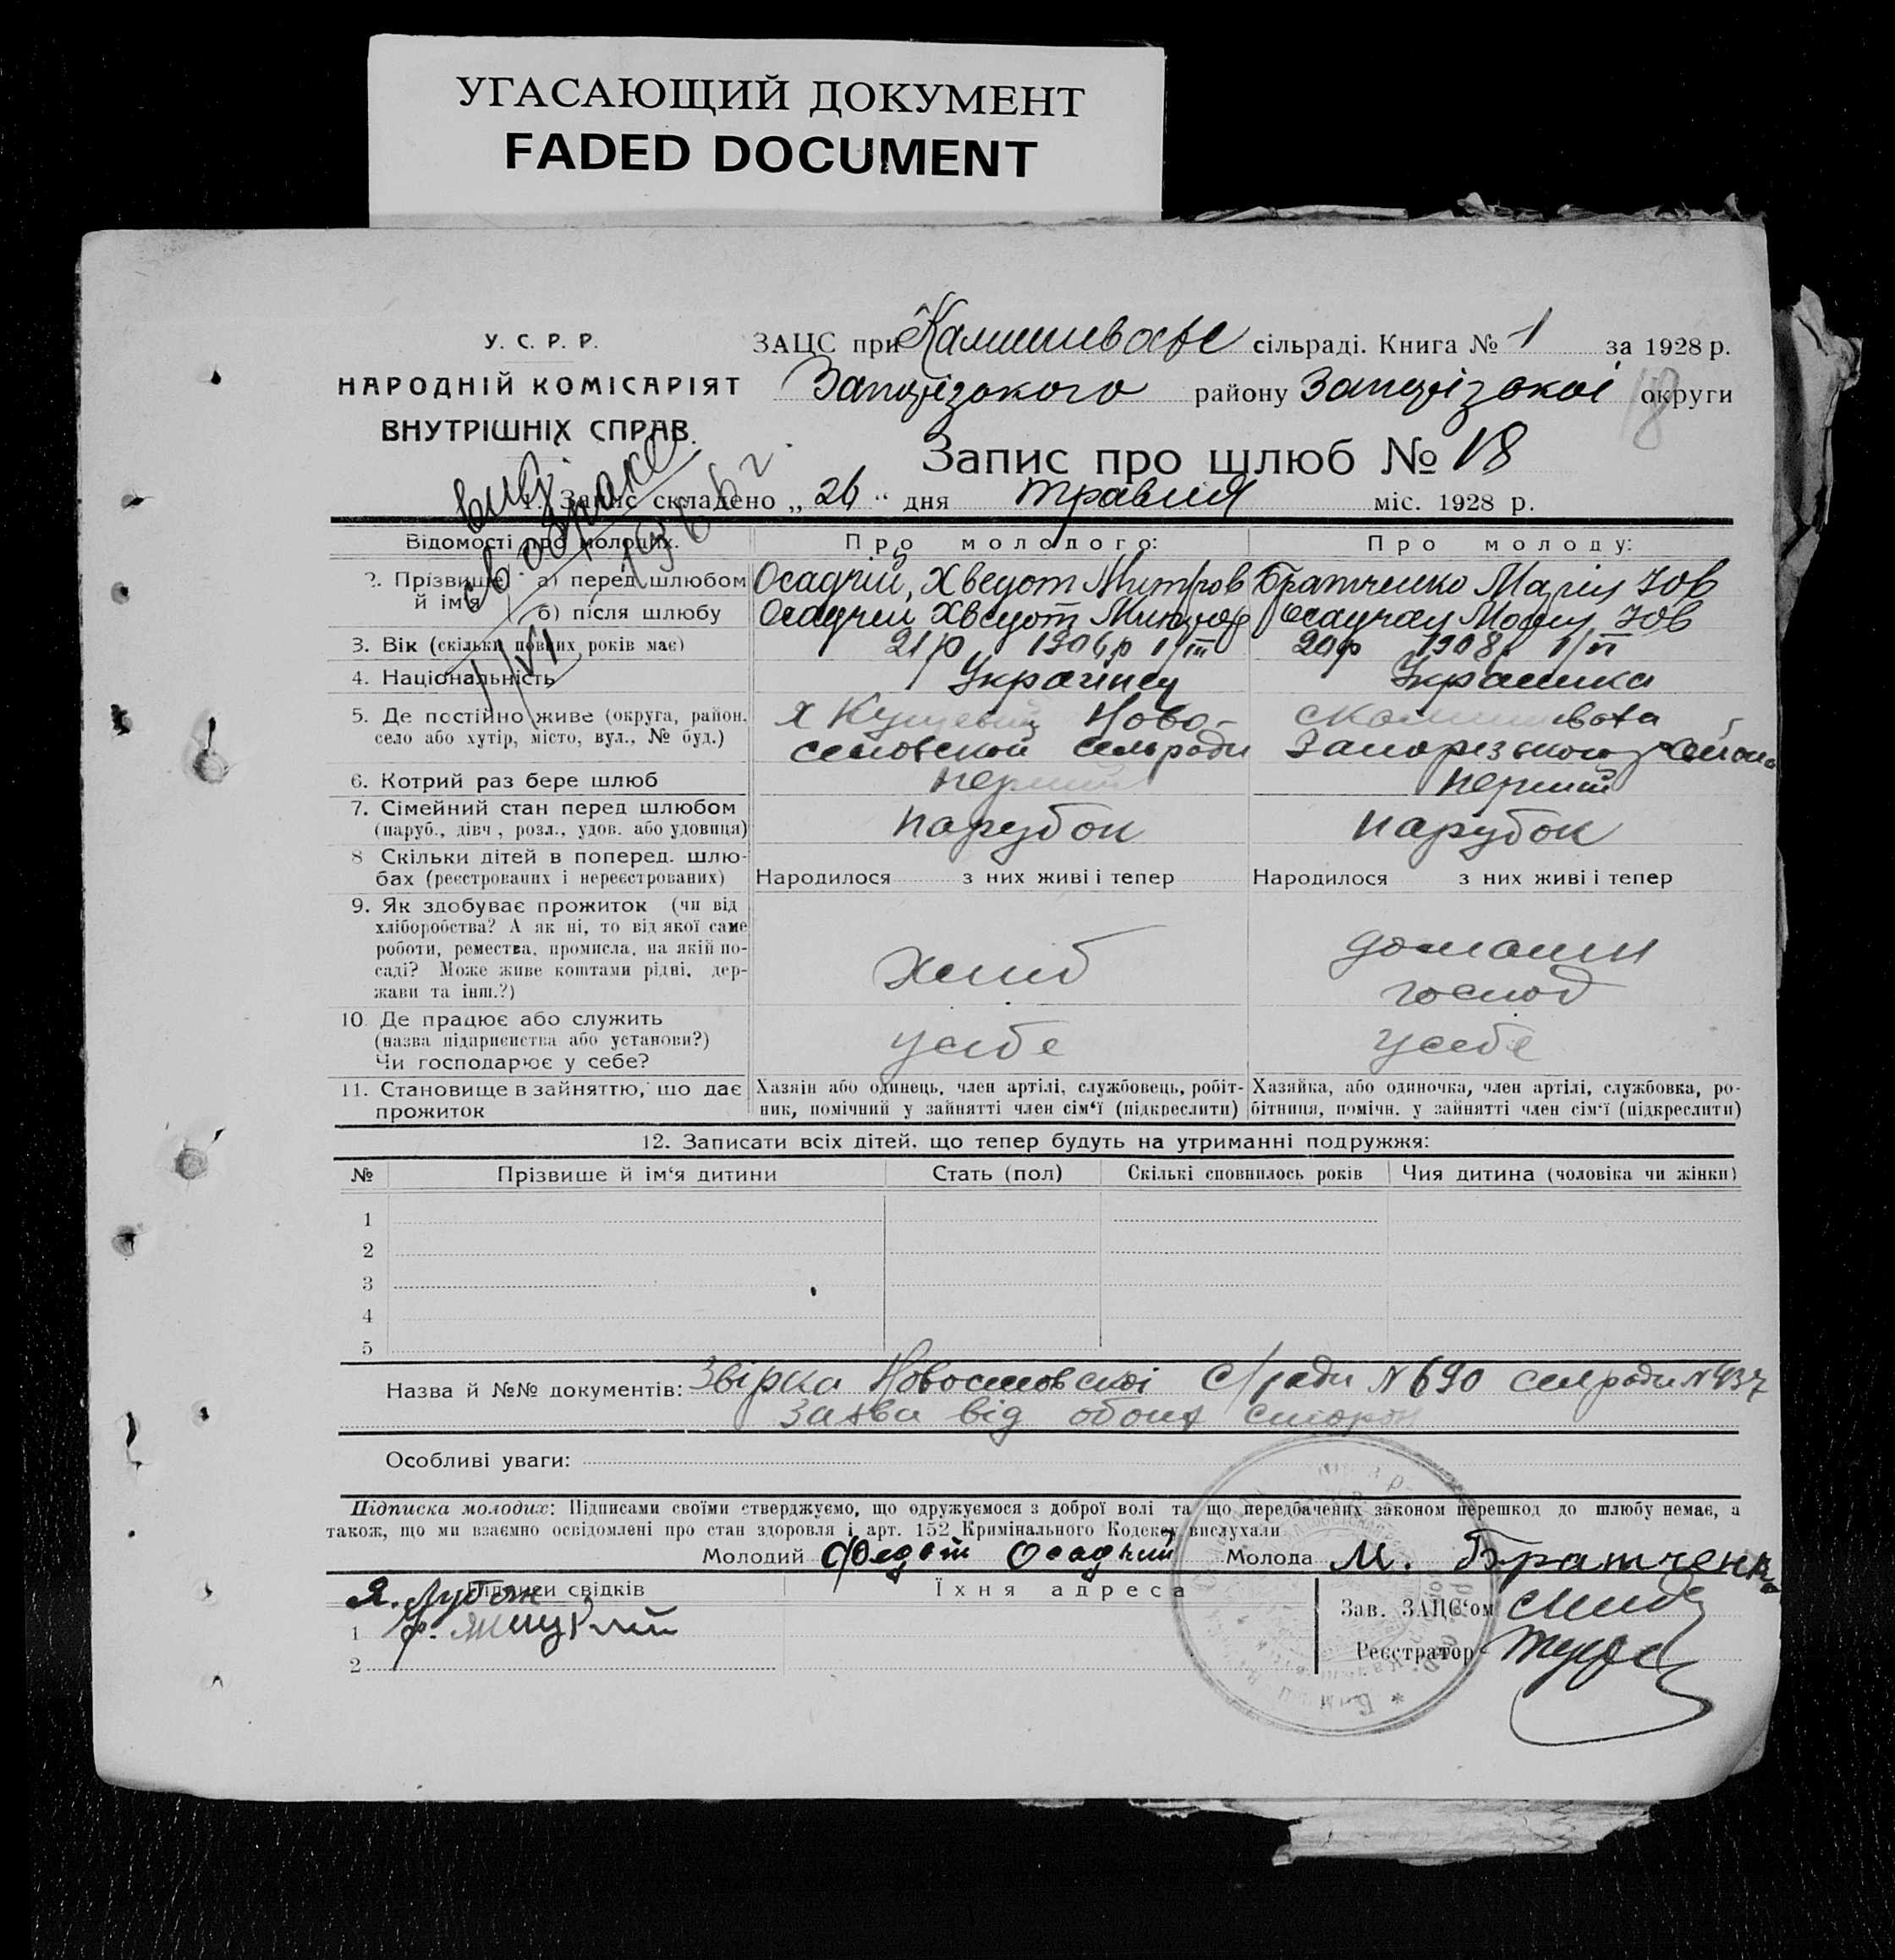 УГАСАЮЩИЙ ДОКУМЕНТ
FADED DOCUMENT
У. С. Р. Р.
НАРОДНІЙ КОМІСАРІЯТ
ВНУТРІШНІХ СПРАВ.
ЗАЦС при сільраді. Книга № 1 за 1928 р.
району округи
18
Запис про шлюб № 18
1. Запис складено „ 26 “ дня травня міс. 1928 р.
Відомості про молодих. Про молодого: Про молоду:
2. Прізвище й ім'я а) перед шлюбом Осадчій, Хведот Митров Братченко Мария
б) після шлюбу Осадчий Хведот Осадчая
3. Вік (скільки повних років має) 21 р 1906 р 1/III 20 р 1908 р 1/VI
4. Національність Українец Украинка
5. Де постійно живе (округа, район, село або хутір, місто, вул., № буд.) х Ново-
сельради района
6. Котрий раз бере шлюб перший перший
7. Сімейний стан перед шлюбом парубок парубок
(паруб., дівч., розл., удов. або удовиця)
8 Скільки дітей в поперед. шлю-
бах (реєстрованих і нереєстрованих) Народилося з них живі і тепер Народилося з них живі і тепер
9. Як здобуває прожиток (чи від
хліборобства? А як ні, то від якої саме
роботи, ремества, промисла, на якій по- домашн
саді? Може живе коштами рідні, дер- Хліб
жави та інш.?) господ
10. Де працює або служить
(назва підприємства або установи?) у себе у себе
Чи господарює у себе?
11. Становище в зайняттю, що дає Хазяін або одинець, член артілі, службовець, робіт- Хазяйка, або одиночка, член артілі, службовка, ро-
прожиток ник, помічний у зайнятті член сім‘ї (підкреслити) бітниця, помічн. у зайнятті член сім‘ї (підкреслити)
12. Записати всіх дітей, що тепер будуть на утриманні подружжя:
№ Прізвище й ім‘я дитини Стать (пол) Скількі сповнилось років Чия дитина (чоловіка чи жінки)
1
2
3
4
5
Назва й №№ документів: Звірка с/ради N 690 сельради N 437
Заява від обоих сторон
Особливі уваги:
Підписка молодих: Підписами своїми стверджуємо, що одружуємося з доброї волі та що передбачених законом перешкод до шлюбу немає, а
також, що ми взаємно освідомлені про стан здоровля і арт. 152 Кримінального Кодексу вислухали
Молодий Федот Осадчий Молода М. Братченко
Підписи свідків Їхня адреса
Зав. ЗАЦС‘ом
1
Реєстратор
2